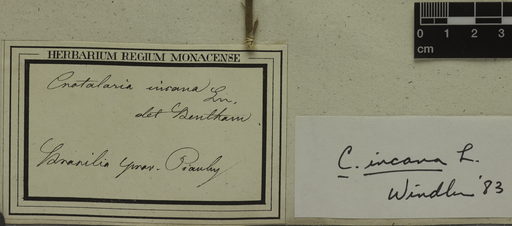 HERBARIUM REGIUM MONACENSE
Crotalaria incana Ln.
det Bentham.
Brasilia prov. Piauhy
C. incana L.
Windler '83
cm 1 2 3